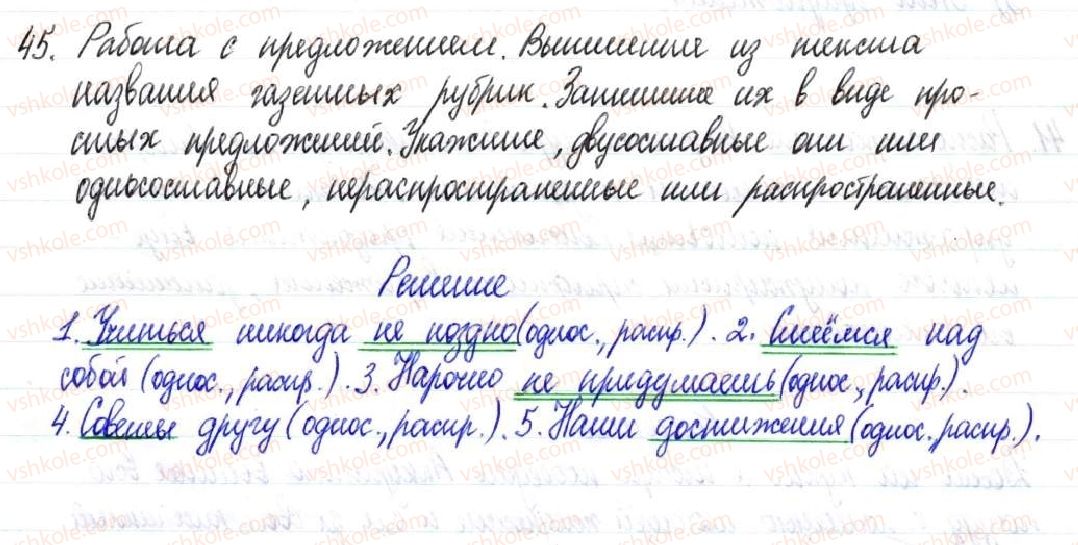 45. Работа с предложением. Выпишите из текста
названия газетных рубрик. Запишите их в виде про-
стых предложений. Укажите, двусоставные они или
односоставные, нераспространенные или распространенные.
Решение
1. Учиться никогда не поздно (однос., распр.). 2. Смеёмся над
собой (однос., распр.). 3. Нарочно не придумаешь (однос., распр.).
4. Советы другу (однос., распр.). 5. Наши достижения (однос., распр.).